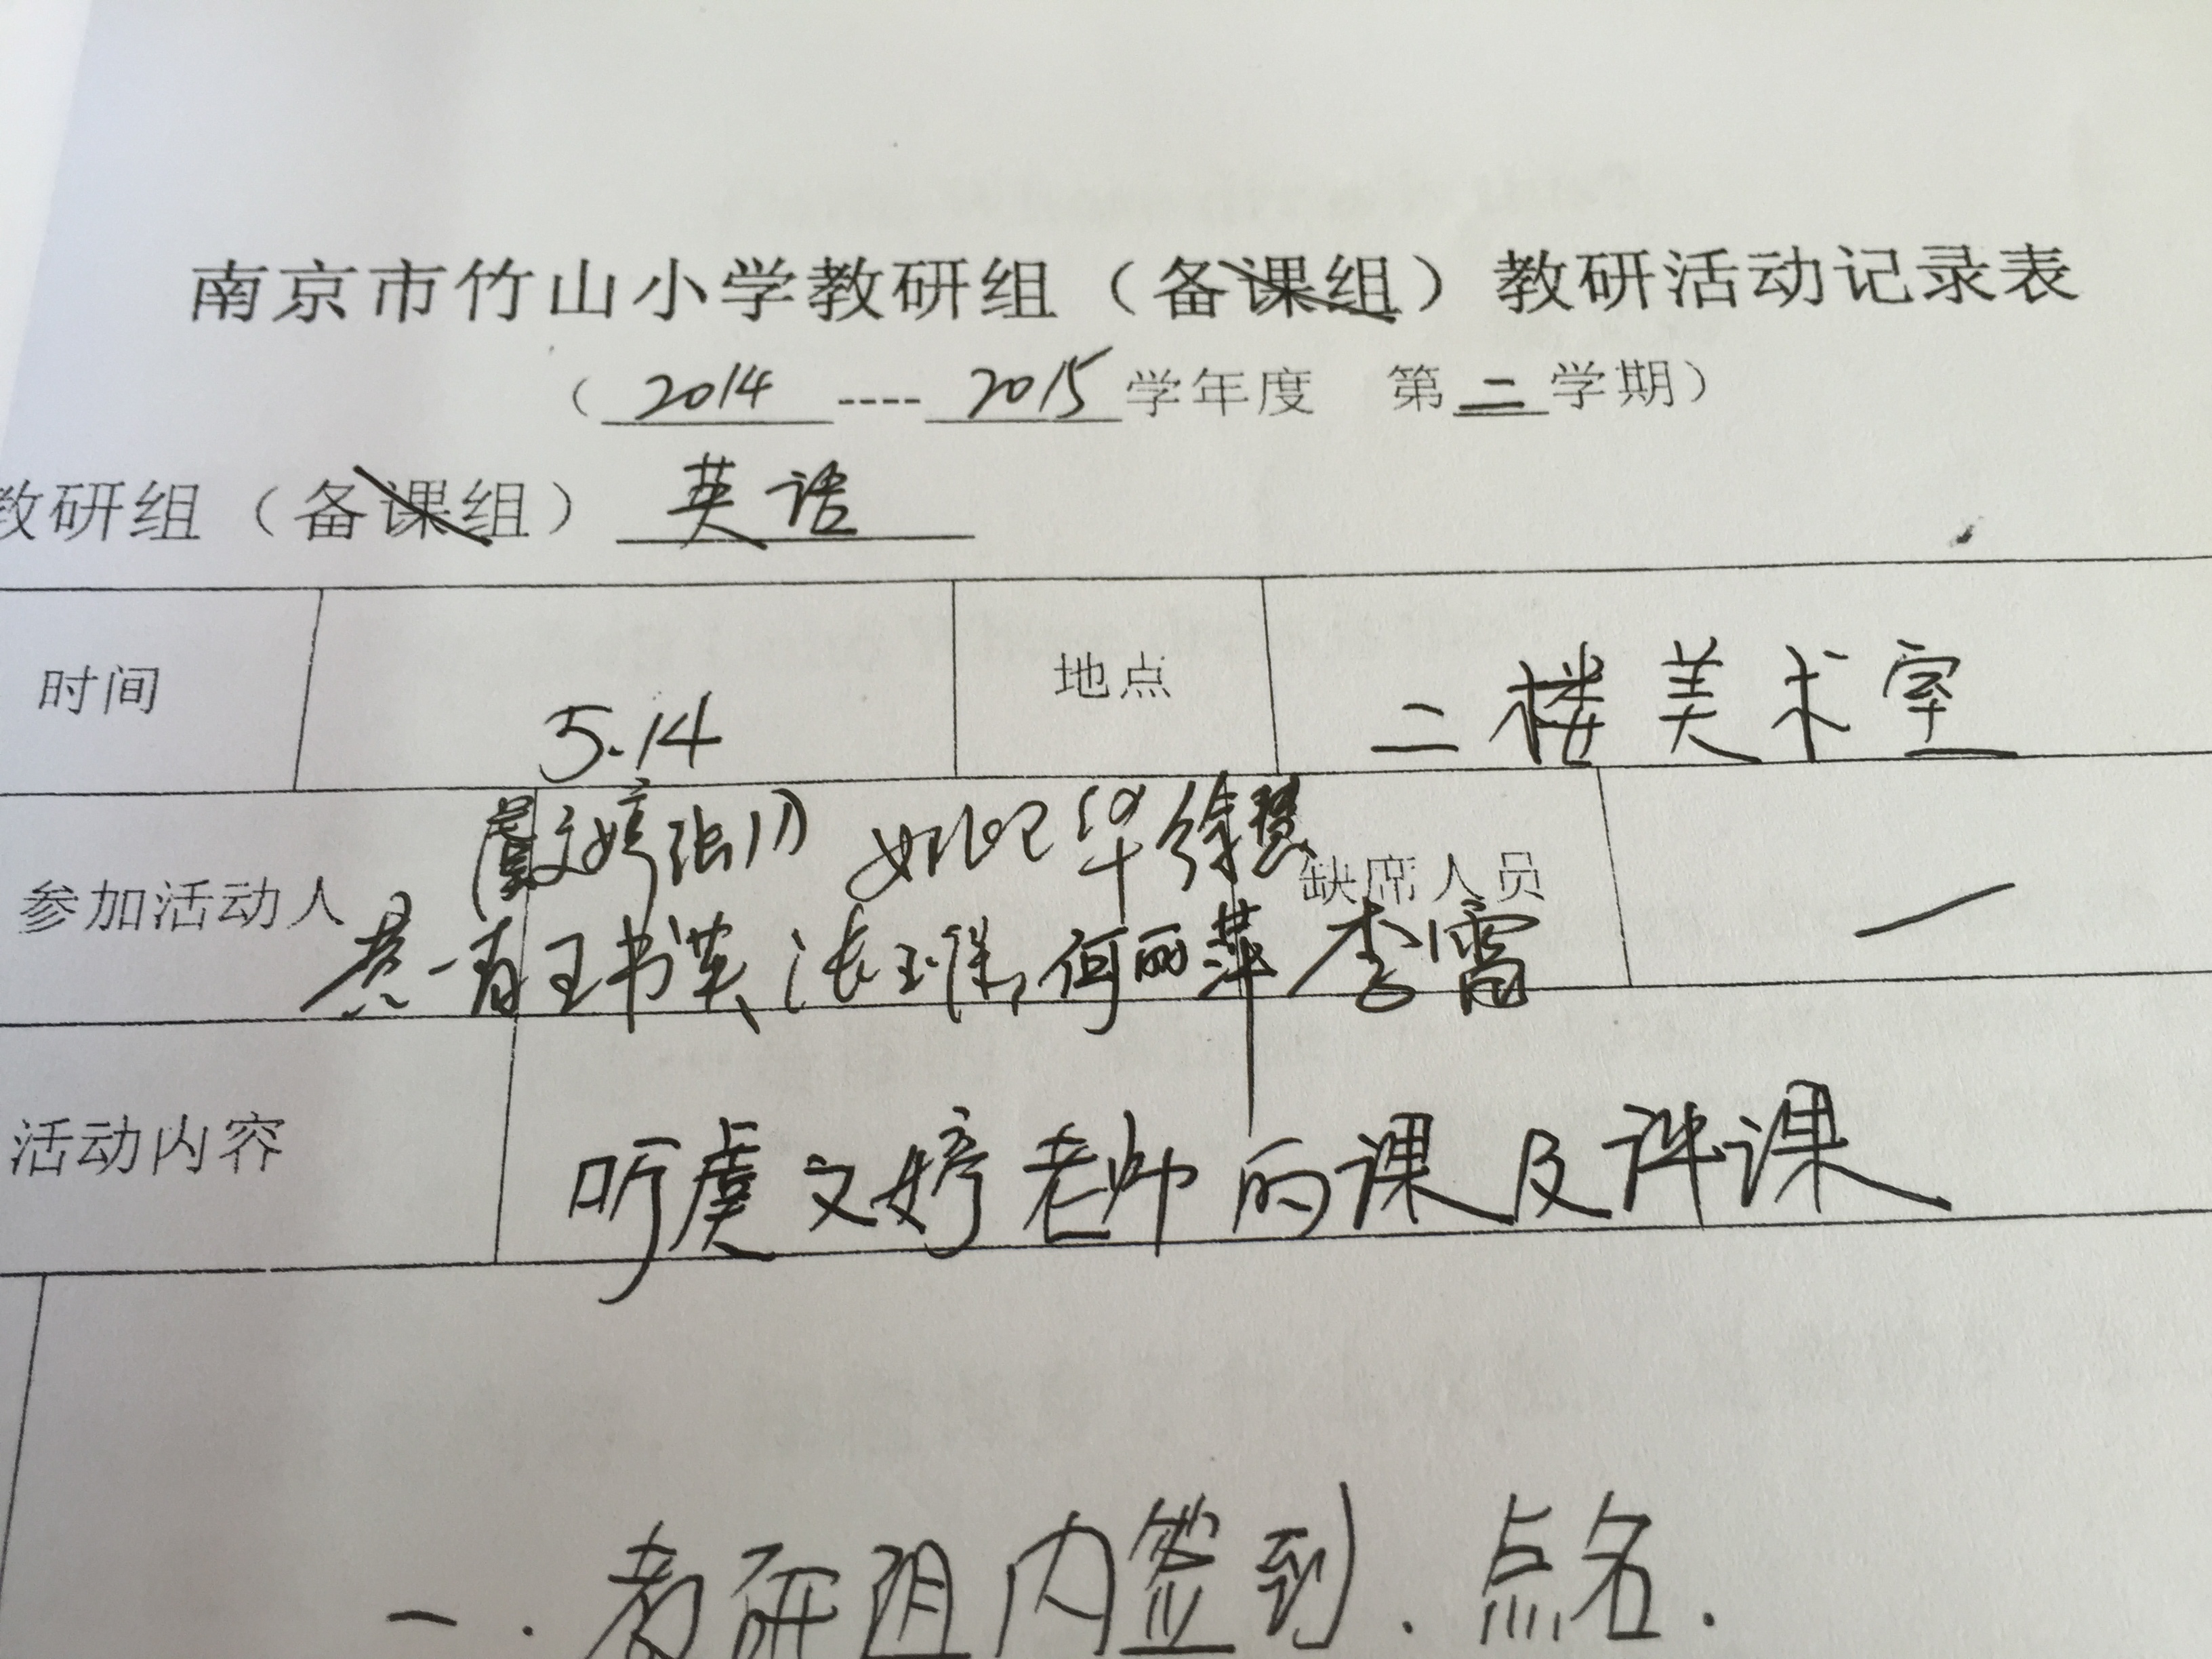 南京市竹山小学教研组（备课组）教研活动记录表
（2014----2015学年度 第二学期）
教研组（备课组）英语
时间 5.14 地点 二楼美术室
虞文婷 张川 徐慧
参加活动人 缺席人员 —
王书英 何丽萍 李雷
活动内容 听虞文婷老师的课及评课
一.教研组内签到.点名.